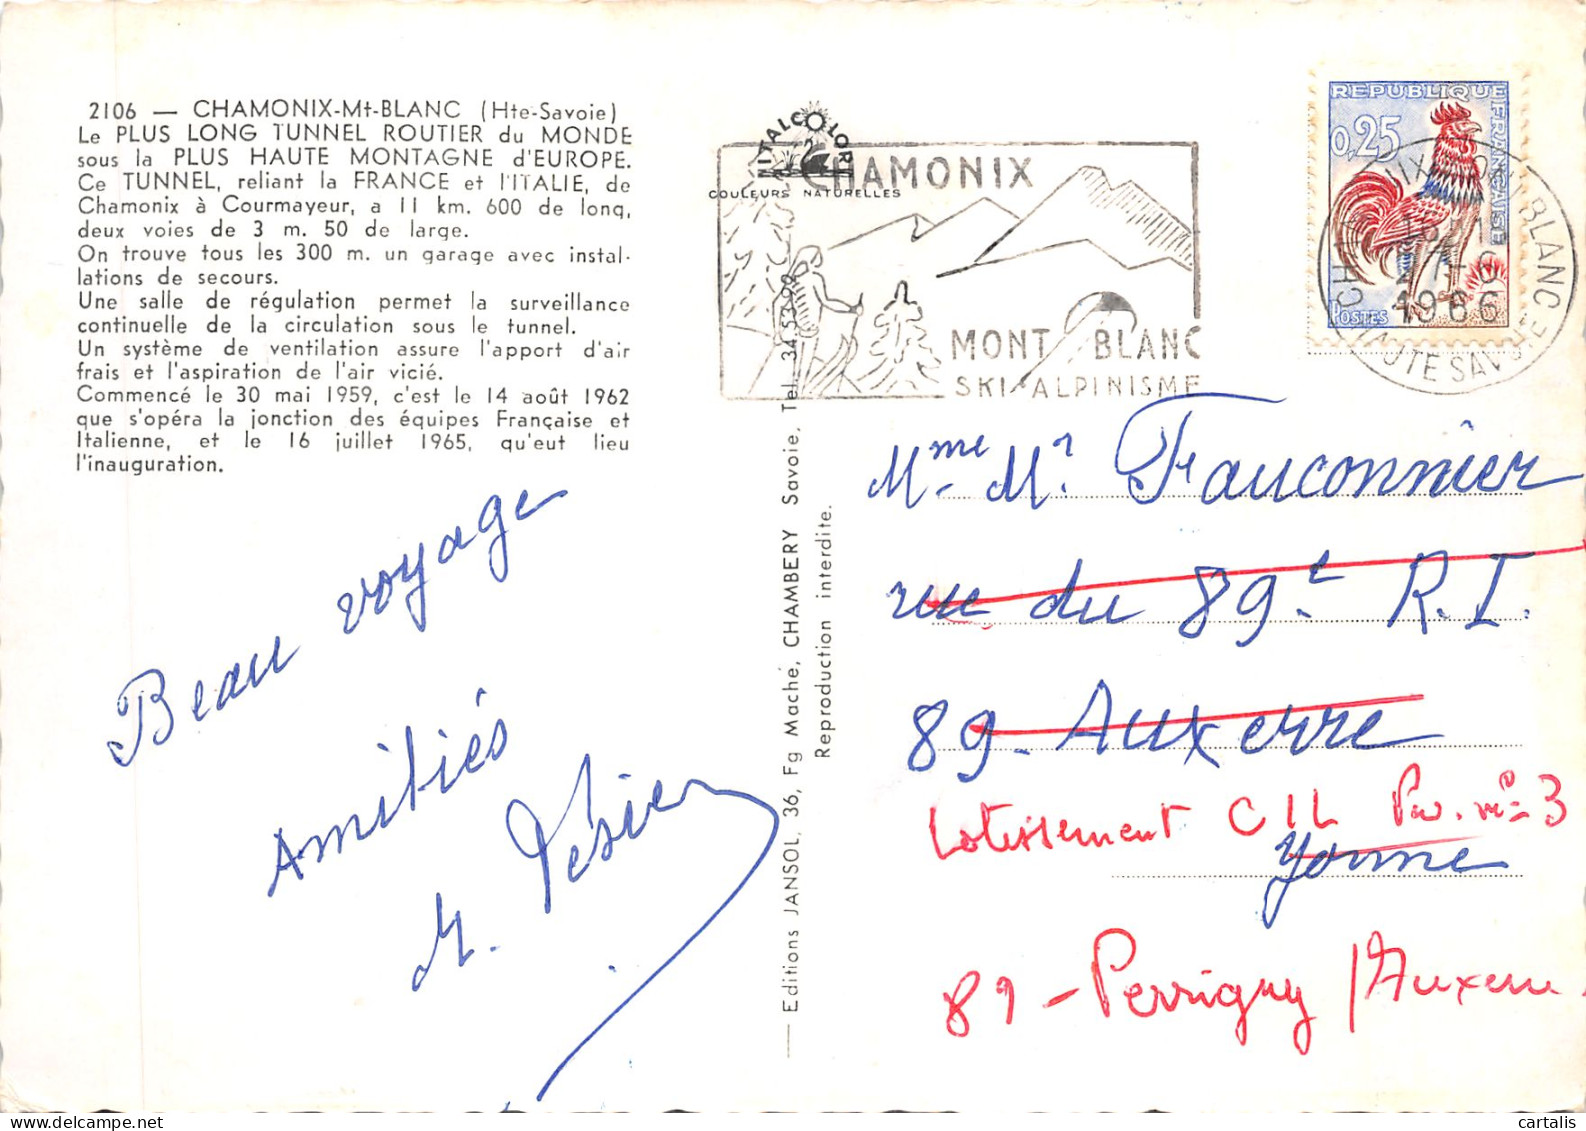 2106 — CHAMONIX-Mt-BLANC (Hte-Savoie)
Le PLUS LONG TUNNEL ROUTIER du MONDE
sous la PLUS HAUTE MONTAGNE d'EUROPE.
Ce TUNNEL, reliant la FRANCE et l'ITALIE, de
Chamonix à Courmayeur, a 11 km. 600 de long,
deux voies de 3 m. 50 de large.
On trouve tous les 300 m. un garage avec instal-
lations de secours.
Une salle de régulation permet la surveillance
continuelle de la circulation sous le tunnel.
Un système de ventilation assure l'apport d'air
frais et l'aspiration de l'air vicié.
Commencé le 30 mai 1959, c'est le 14 août 1962
que s'opéra la jonction des équipes Française et
Italienne, et le 16 juillet 1965, qu'eut lieu
l'inauguration.
Beau voyage
Amitiés
ITALCOLOR
COULEURS NATURELLES
CHAMONIX
MONT BLANC
SKI-ALPINISME
Editions JANSOL, 36, Fg Maché, CHAMBERY Savoie. Tel. 34.53.99
Reproduction interdite.
REPUBLIQUE FRANÇAISE
0,25
POSTES
CHAMONIX MONT BLANC
1966
HAUTE SAVOIE
Mme Mr Fauconnier
rue du 89e R.I.
89- Auxerre
Lotissement CIL Pav. n°= 3
Yonne
89 - Perrigny / Auxerre
cartalis